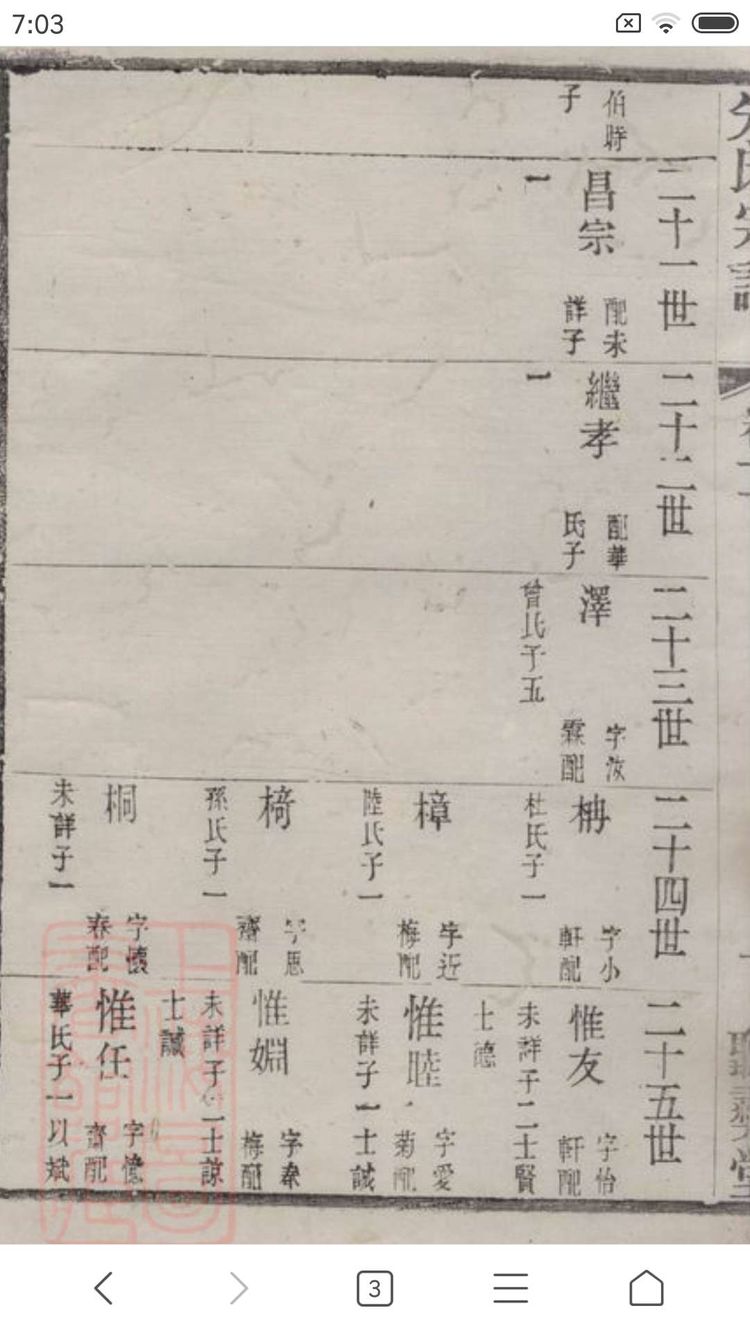 7:03
伯時
子
二十一世
昌宗
配未
詳子
一
二十二世
繼孝
配華
氏子
一
二十三世
澤
字汝
霖配
曾氏子五
二十四世
柟
字小
軒配
杜氏子一
樟
字近
梅配
陸氏子一
椅
字思
齋配
孫氏子一
桐
字懷
春配
未詳子一
二十五世
惟友
字怡
軒配
未詳子二士賢
士德
惟睦
字愛
菊配
未詳子一士誠
惟嫻
字泰
梅配
未詳子二士諒
士誠
惟任
字憶
齋配
華氏子一以斌
3